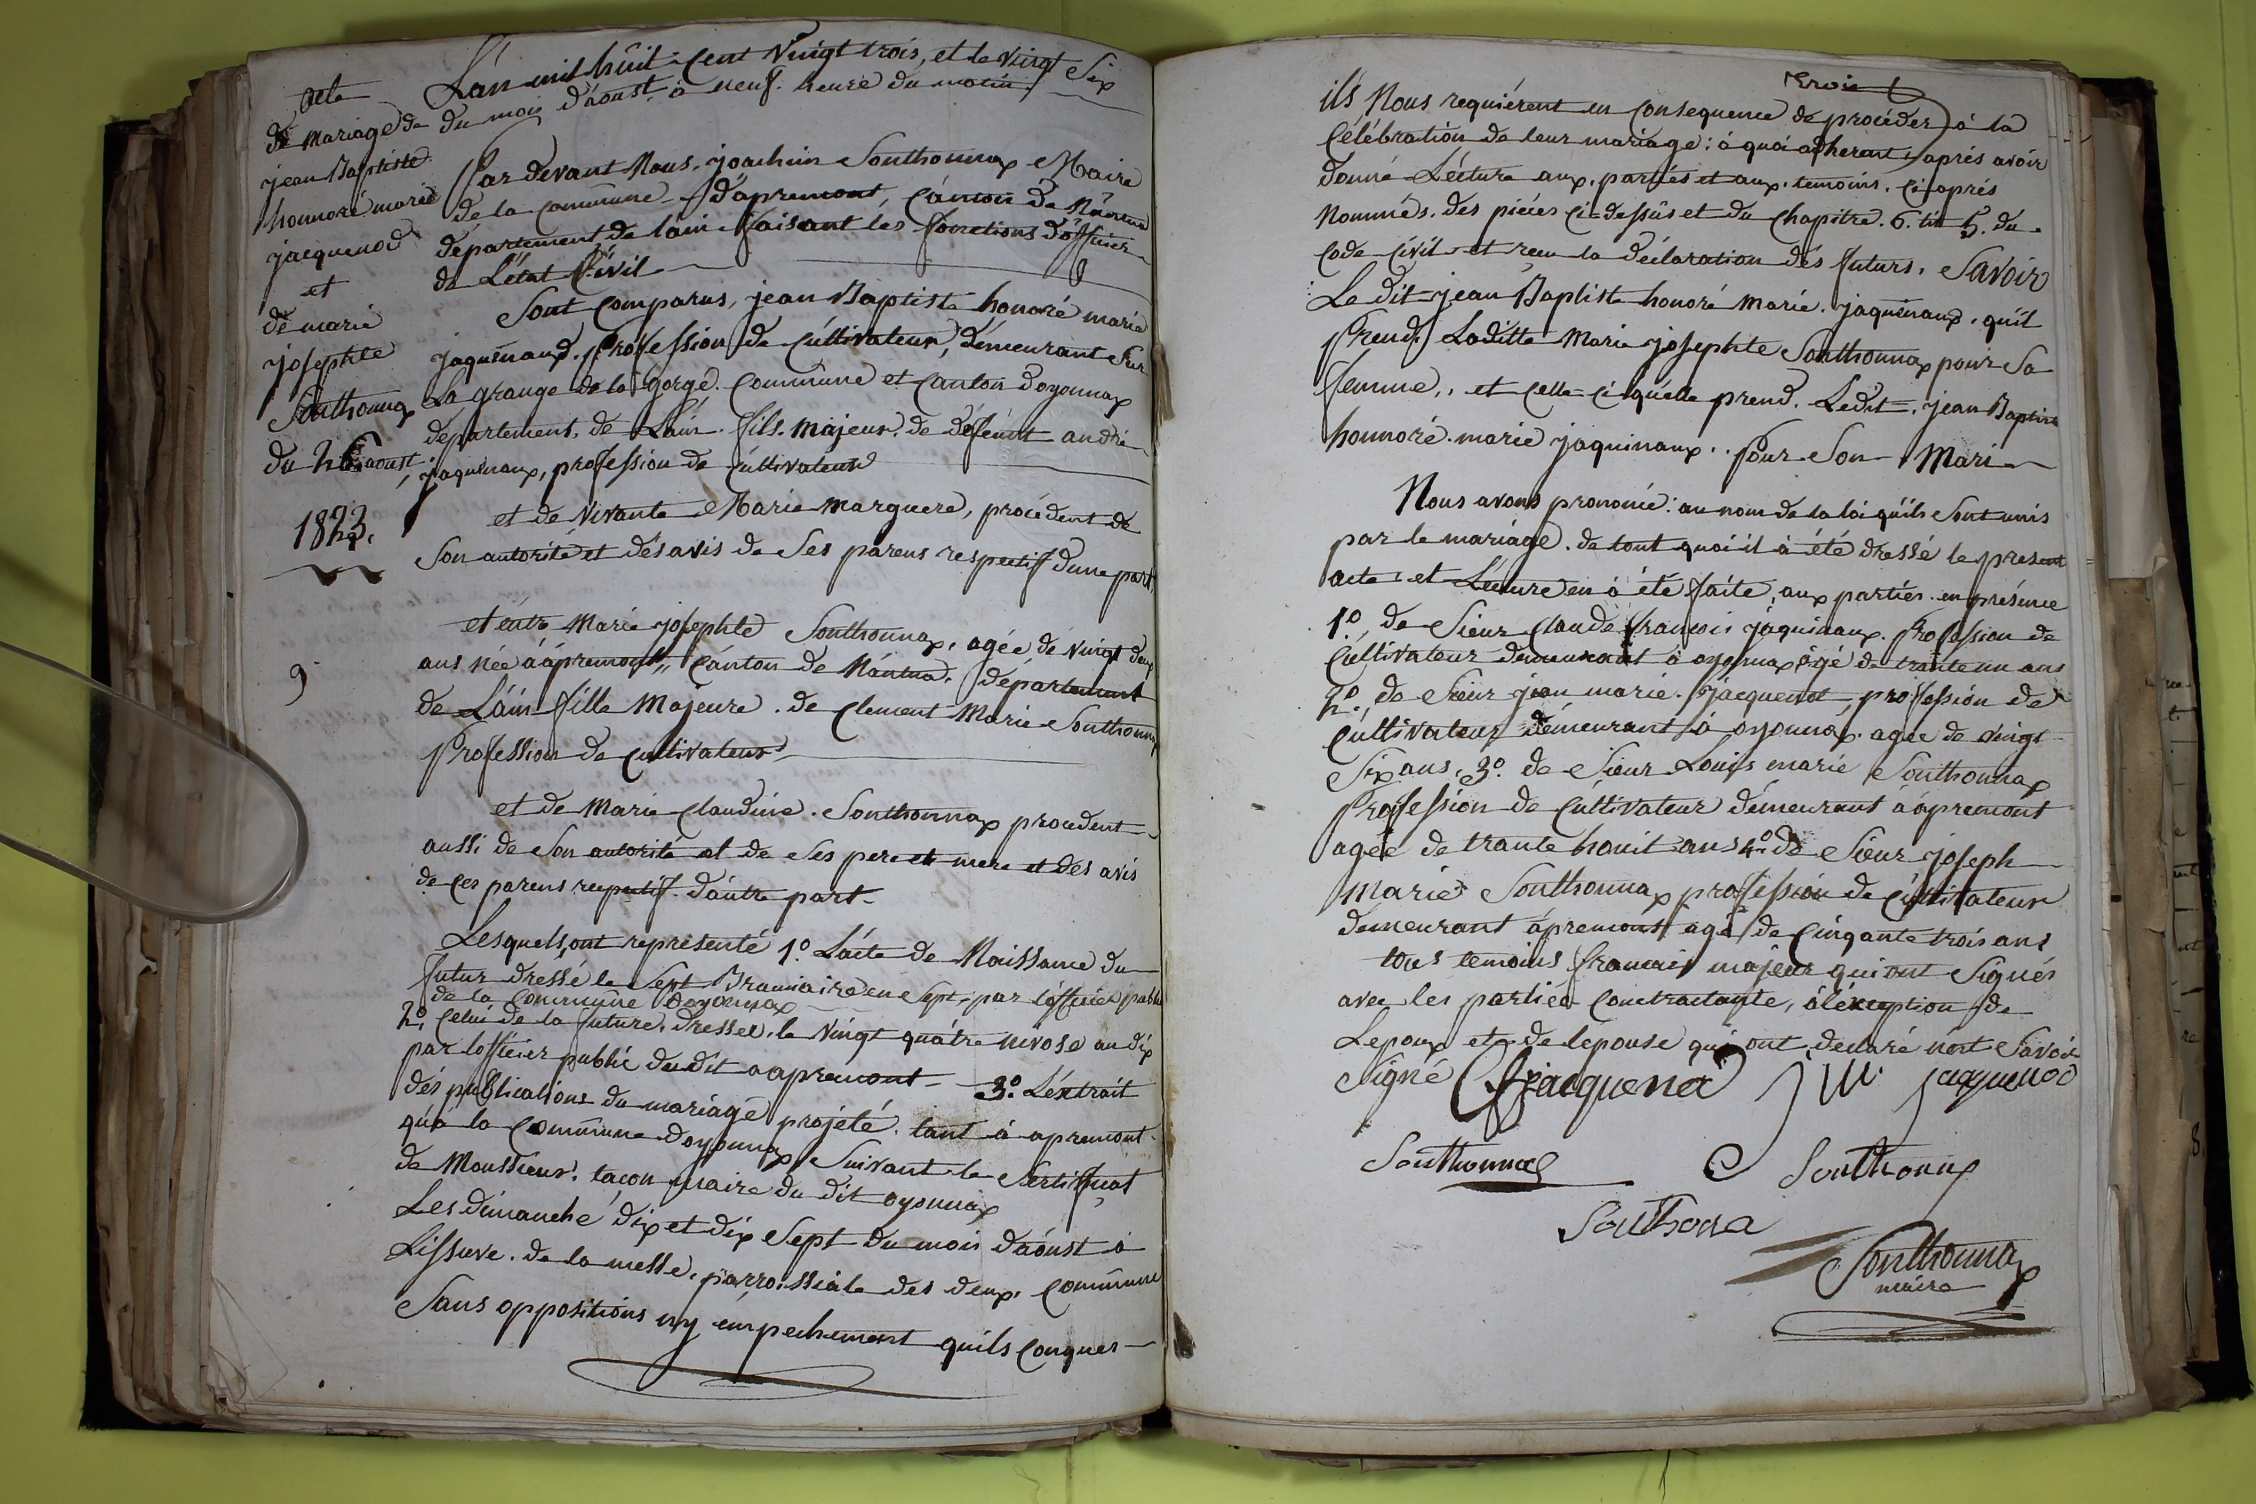 acte
de mariage de
jean Baptiste
honnoré marie
jacquenod
et
de marie
josephte
Sonthonnax
du 26 aoust
1823.
9
L'an mil huit-Cent Vingt trois, et le vingt Six
du mois d'aoust. à neuf. heure du matin.
Par devant Nous. joachim Sonthonnax Maire
de la Commune d'apremont, Canton de Nantua
departement de lain faisant les fonctions d'officier
de L'état Civil
Sont Comparus, jean Baptiste honoré marie
jaquinaux. Profession de Cultivateur, demeurant Sur
La grange de la gorge. Commune et Canton d'oyonnax
département. de L'ain. fils. majeur. de défeunt andré
jaquinaux, profession de Cultivateur
et de Vivante Marie marguere, procédent de
Son autorité et dés avis de Ses parens respectif dune part,
et entre Marie josephte Sonthonnax, agée de vingt deux
ans née à apremont, Canton de Nantua. département
de L'ain fille Majeure. de Clement Marie Sonthonnax
Profession de Cultivateur
et de Marie Claudine. Sonthonnax procedent
aussi de Son autorité et de Ses pere et mere et des avis
de Ces parens respectif. d'autre part
Lesquels, ont representé 1º. L'acte de Naissance du
futur dressé le Sept Brumaire en Sept, par l'officier public
de la Commune d'oyonnax
2º. Celui de la future. dressee, le Vingt quatre nivose an dix
par l'officier public du dit aapremont 3º. L'extrait
dés publications du mariage projeté. tant à apremont
qu'à la Commune d'oyonnax Suivant le Sertificat
de Monssieur. tacon maire du dit oyonnax
Les dimanche dix et dix Sept du mois d'aoust à
L'issuve. de la messe, parroissiale des deux. Commune
Sans oppositions ny émpechement quils Conques
Trois
ils Nous requiérent en Consequence de procéder à la
Célébration de leur mariage: à quoi adherent, aprés avoir
donné Lécture aux. partiés et aux. temoins. Ci aprés
Nommés. des piéces Ci=dessus et du Chapitre. 6. tit 5. du
Code Civil et reçu la déclaration dés futurs. Savoir
Le dit jean Baptiste honoré marie. jaquinaux. qu'il
Prend Laditte Marie josephte Sonthonnax pour Sa
femme,. et Celle Ci qu'elle prend. Ledit. jean Baptiste
honnoré. marie jaquinaux.. Pour Son Mari
Nous avons prononcé: au nom de la loi quils Sont unis
par le mariage. de tout quoi il à été dressé le present
acte et Lécture en à été faite, aux partiés en présence
1º. de Sieur Claude françois jaquinaux. Profession de
Cultivateur demeurant à oyonnax agé de trante un ans
2º. de Sieur jean marie. jacquenod profession de
Cultivateur démeurant à oyonnax. agée de vingt
Six ans, 3º. de Sieur Louis marie Sonthonnax
Profession de Cultivateur démeurant à apremont
agée de trante houit ans 4º. de Sieur joseph
marie Sonthonnax profession de Cultivateur
demeurant apremont agé de Cinqante trois ans
tous temoins français majeur qui ont Signés
avec les partiés Contractante, à l'éxception de
L'epoux et de lepouse qui ont declaré n'ent Savoir
Signé Cfjacquenod J M. jacquenod
Sonthonnax C Sonthonnx
Sonthona
Sonthonnax
maire